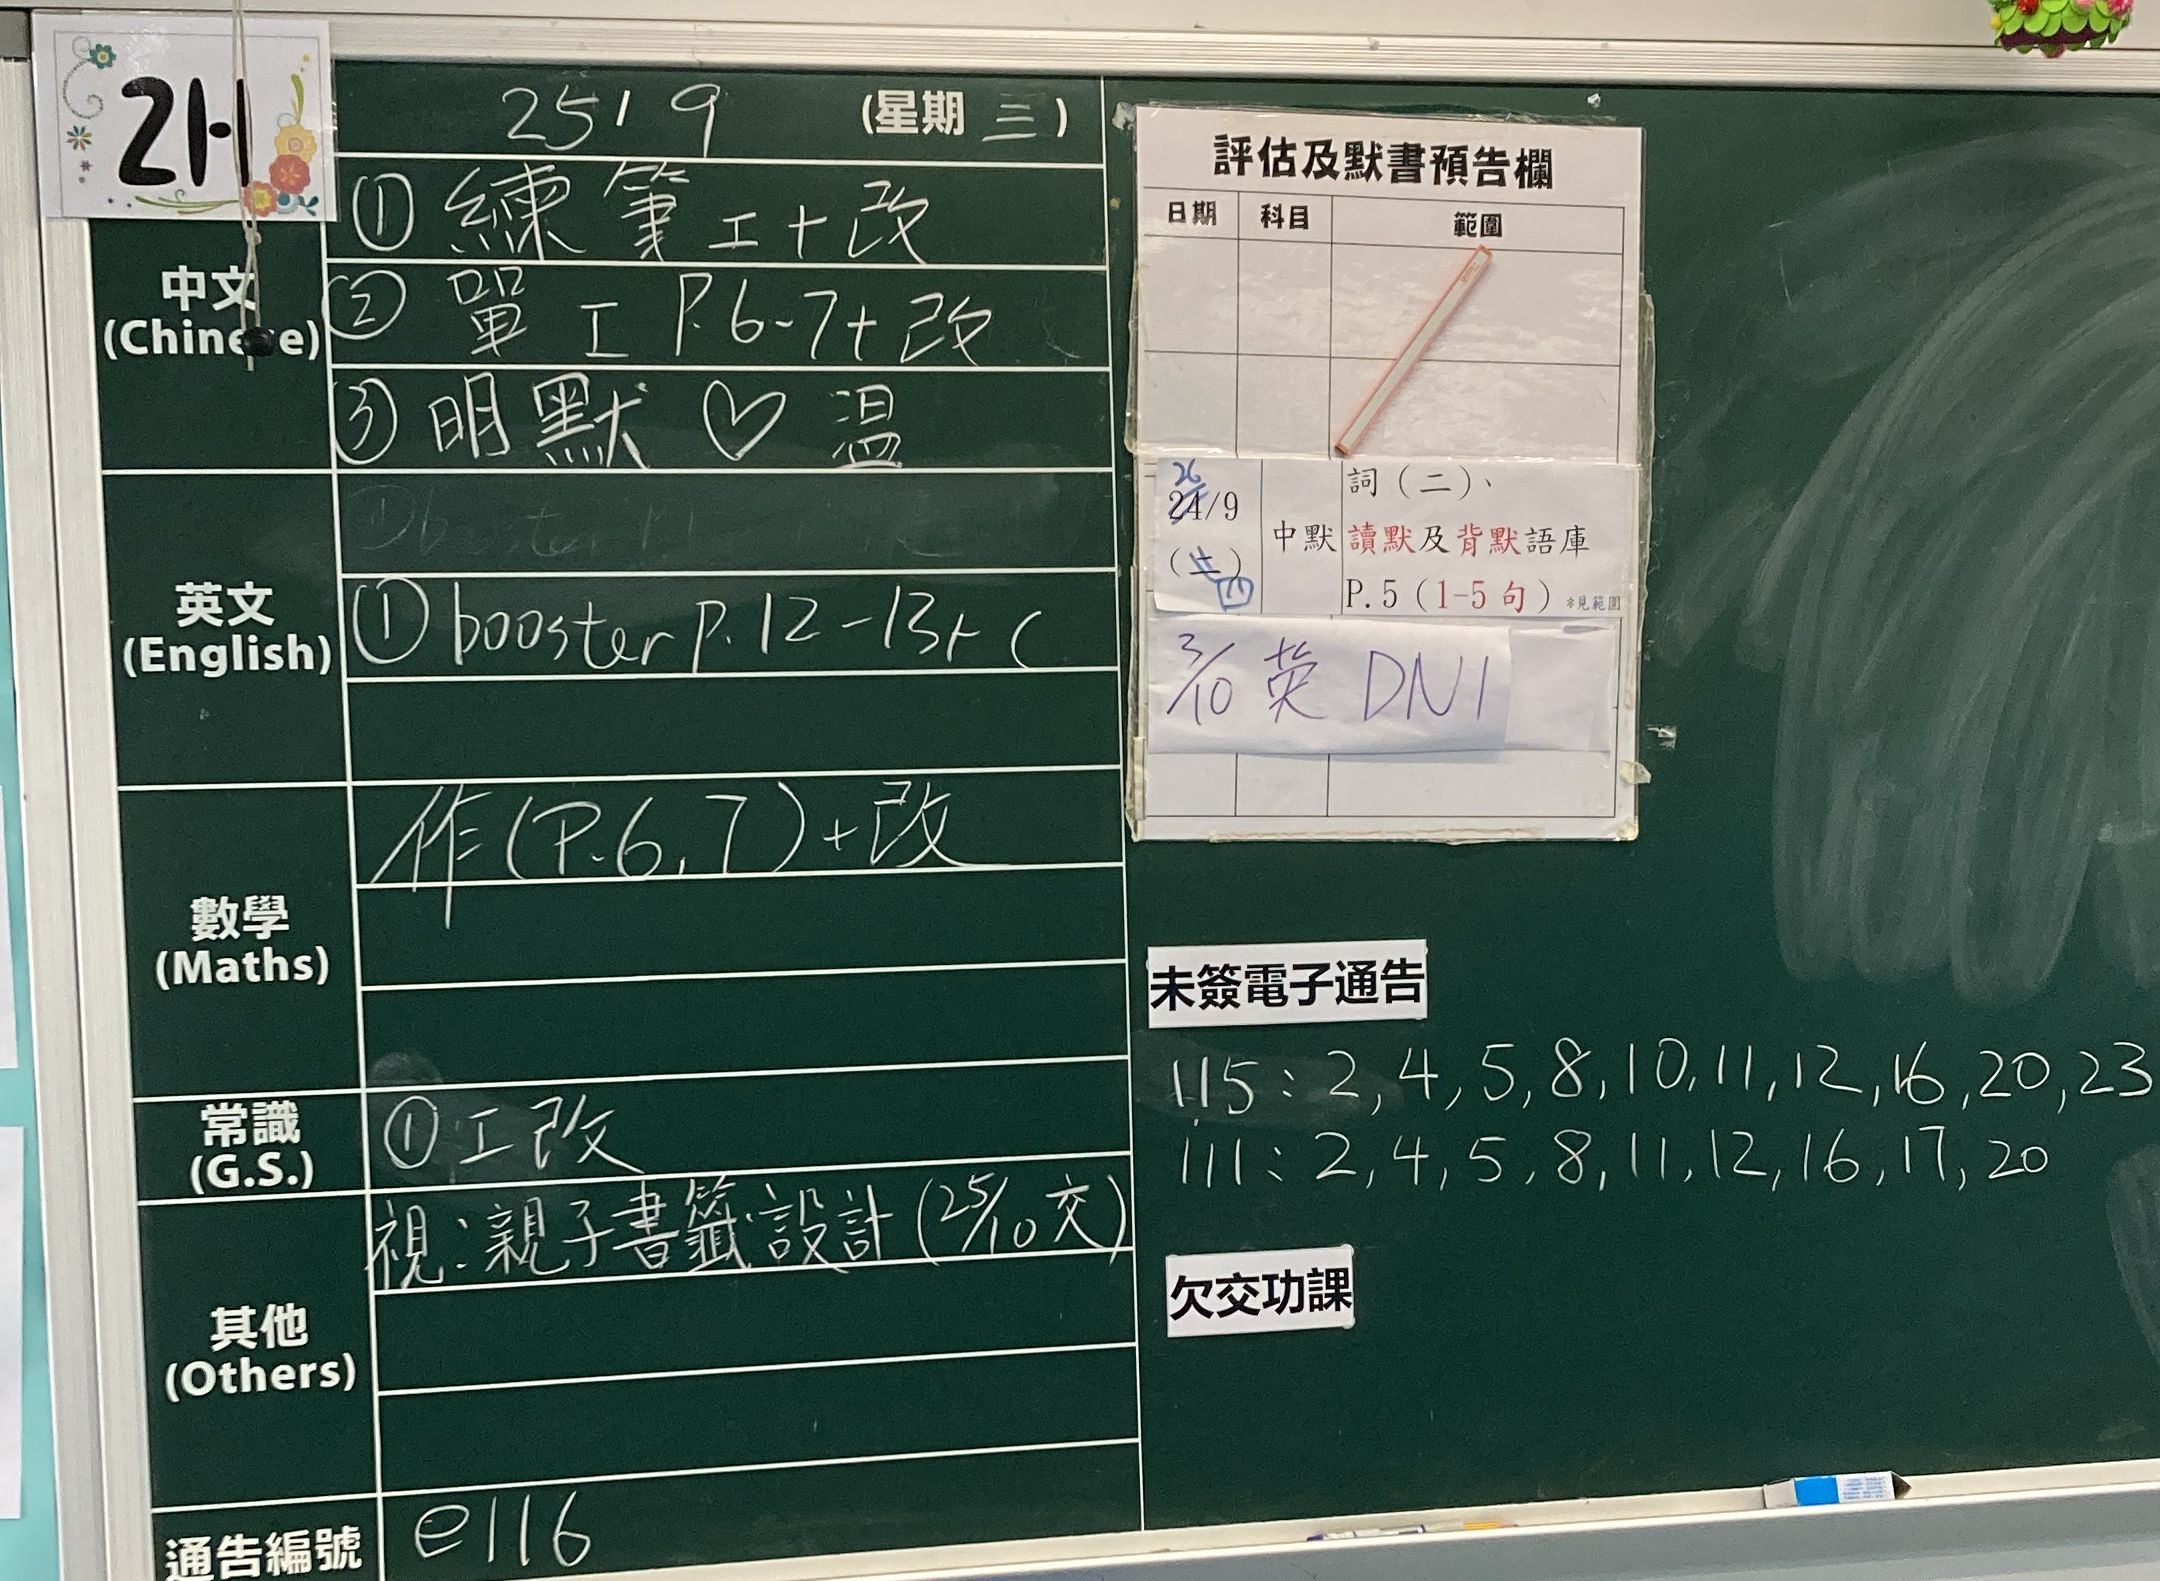 2H
25/9 (星期 三)
中文
(Chinese)
① 練筆工+改
② 單工 P.6-7+改
③ 明默 ♡ 温
英文
(English)
① booster p.12-13+C
數學
(Maths)
作(P.6,7)+改
常識
(G.S.)
① 工改
其他
(Others)
視:親子書籤設計(25/10交)
通告編號
e116
評估及默書預告欄
日期 科目 範圍
26
24/9
(二)
四
中默
詞(二)、
讀默及背默語庫
P.5(1-5句)*見範圍
3/10 英 DN1
未簽電子通告
115:2,4,5,8,10,11,12,16,20,23
111:2,4,5,8,11,12,16,17,20
欠交功課